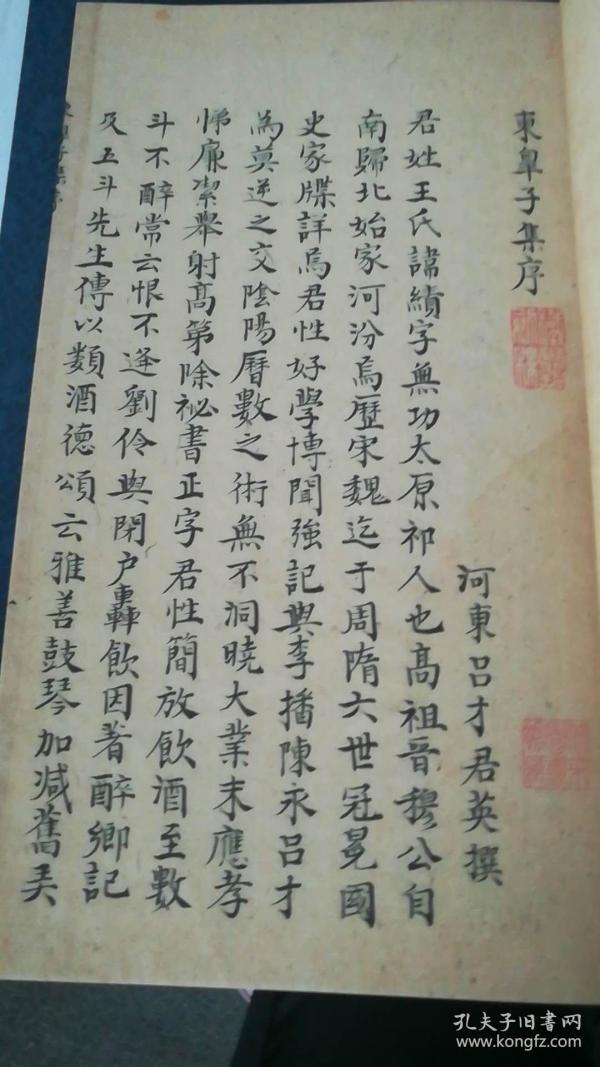 東臯子集序
河東吕才君英撰
君姓王氏諱績字無功太原祁人也髙祖晉穆公自
南歸北始家河汾焉歷宋魏迄于周隋六世冠冕國
史家牒詳焉君性好學博聞強記與李播陳永吕才
為莫逆之交陰陽曆數之術無不洞曉大業末應孝
悌廉潔舉射髙第除祕書正字君性簡放飲酒至數
斗不醉常云恨不逢劉伶與閉户轟飲因著醉鄉記
及五斗先生傳以類酒德頌云雅善鼓琴加减舊弄
孔夫子旧书网
www.kongfz.com